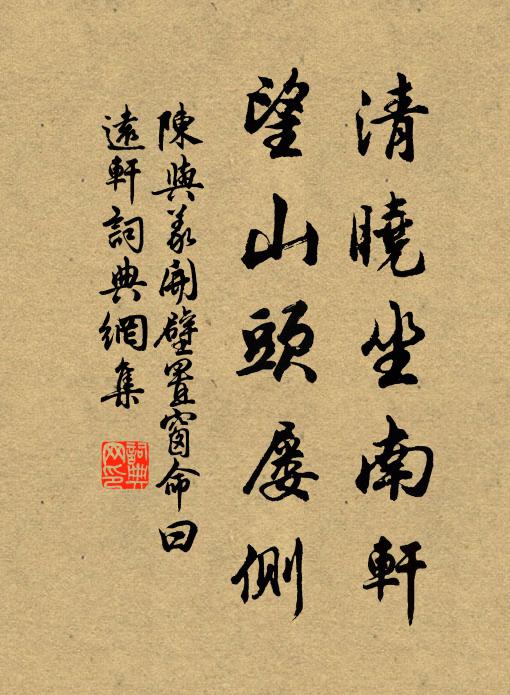 清曉坐南軒
望山頭屢側
陳與義開壁置窗命曰
遠軒詞典網集
詞典网印